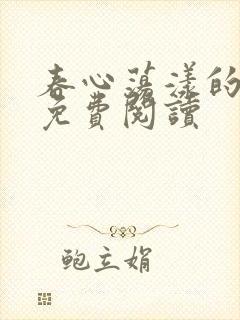 春心蕩漾的
免費閱讀
鲍立娟